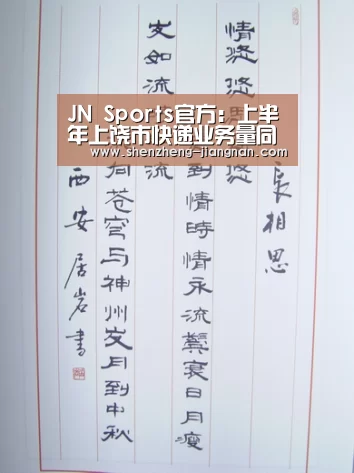 JN Sports官方：上半
年上饶市快递业务量同
www.shenzheng-jiangnan.com
長相思
情悠悠思悠
到情時情永流鬢衰日月瘦
岁如流流
向苍穹与神州岁月到中秋
西安居岩書